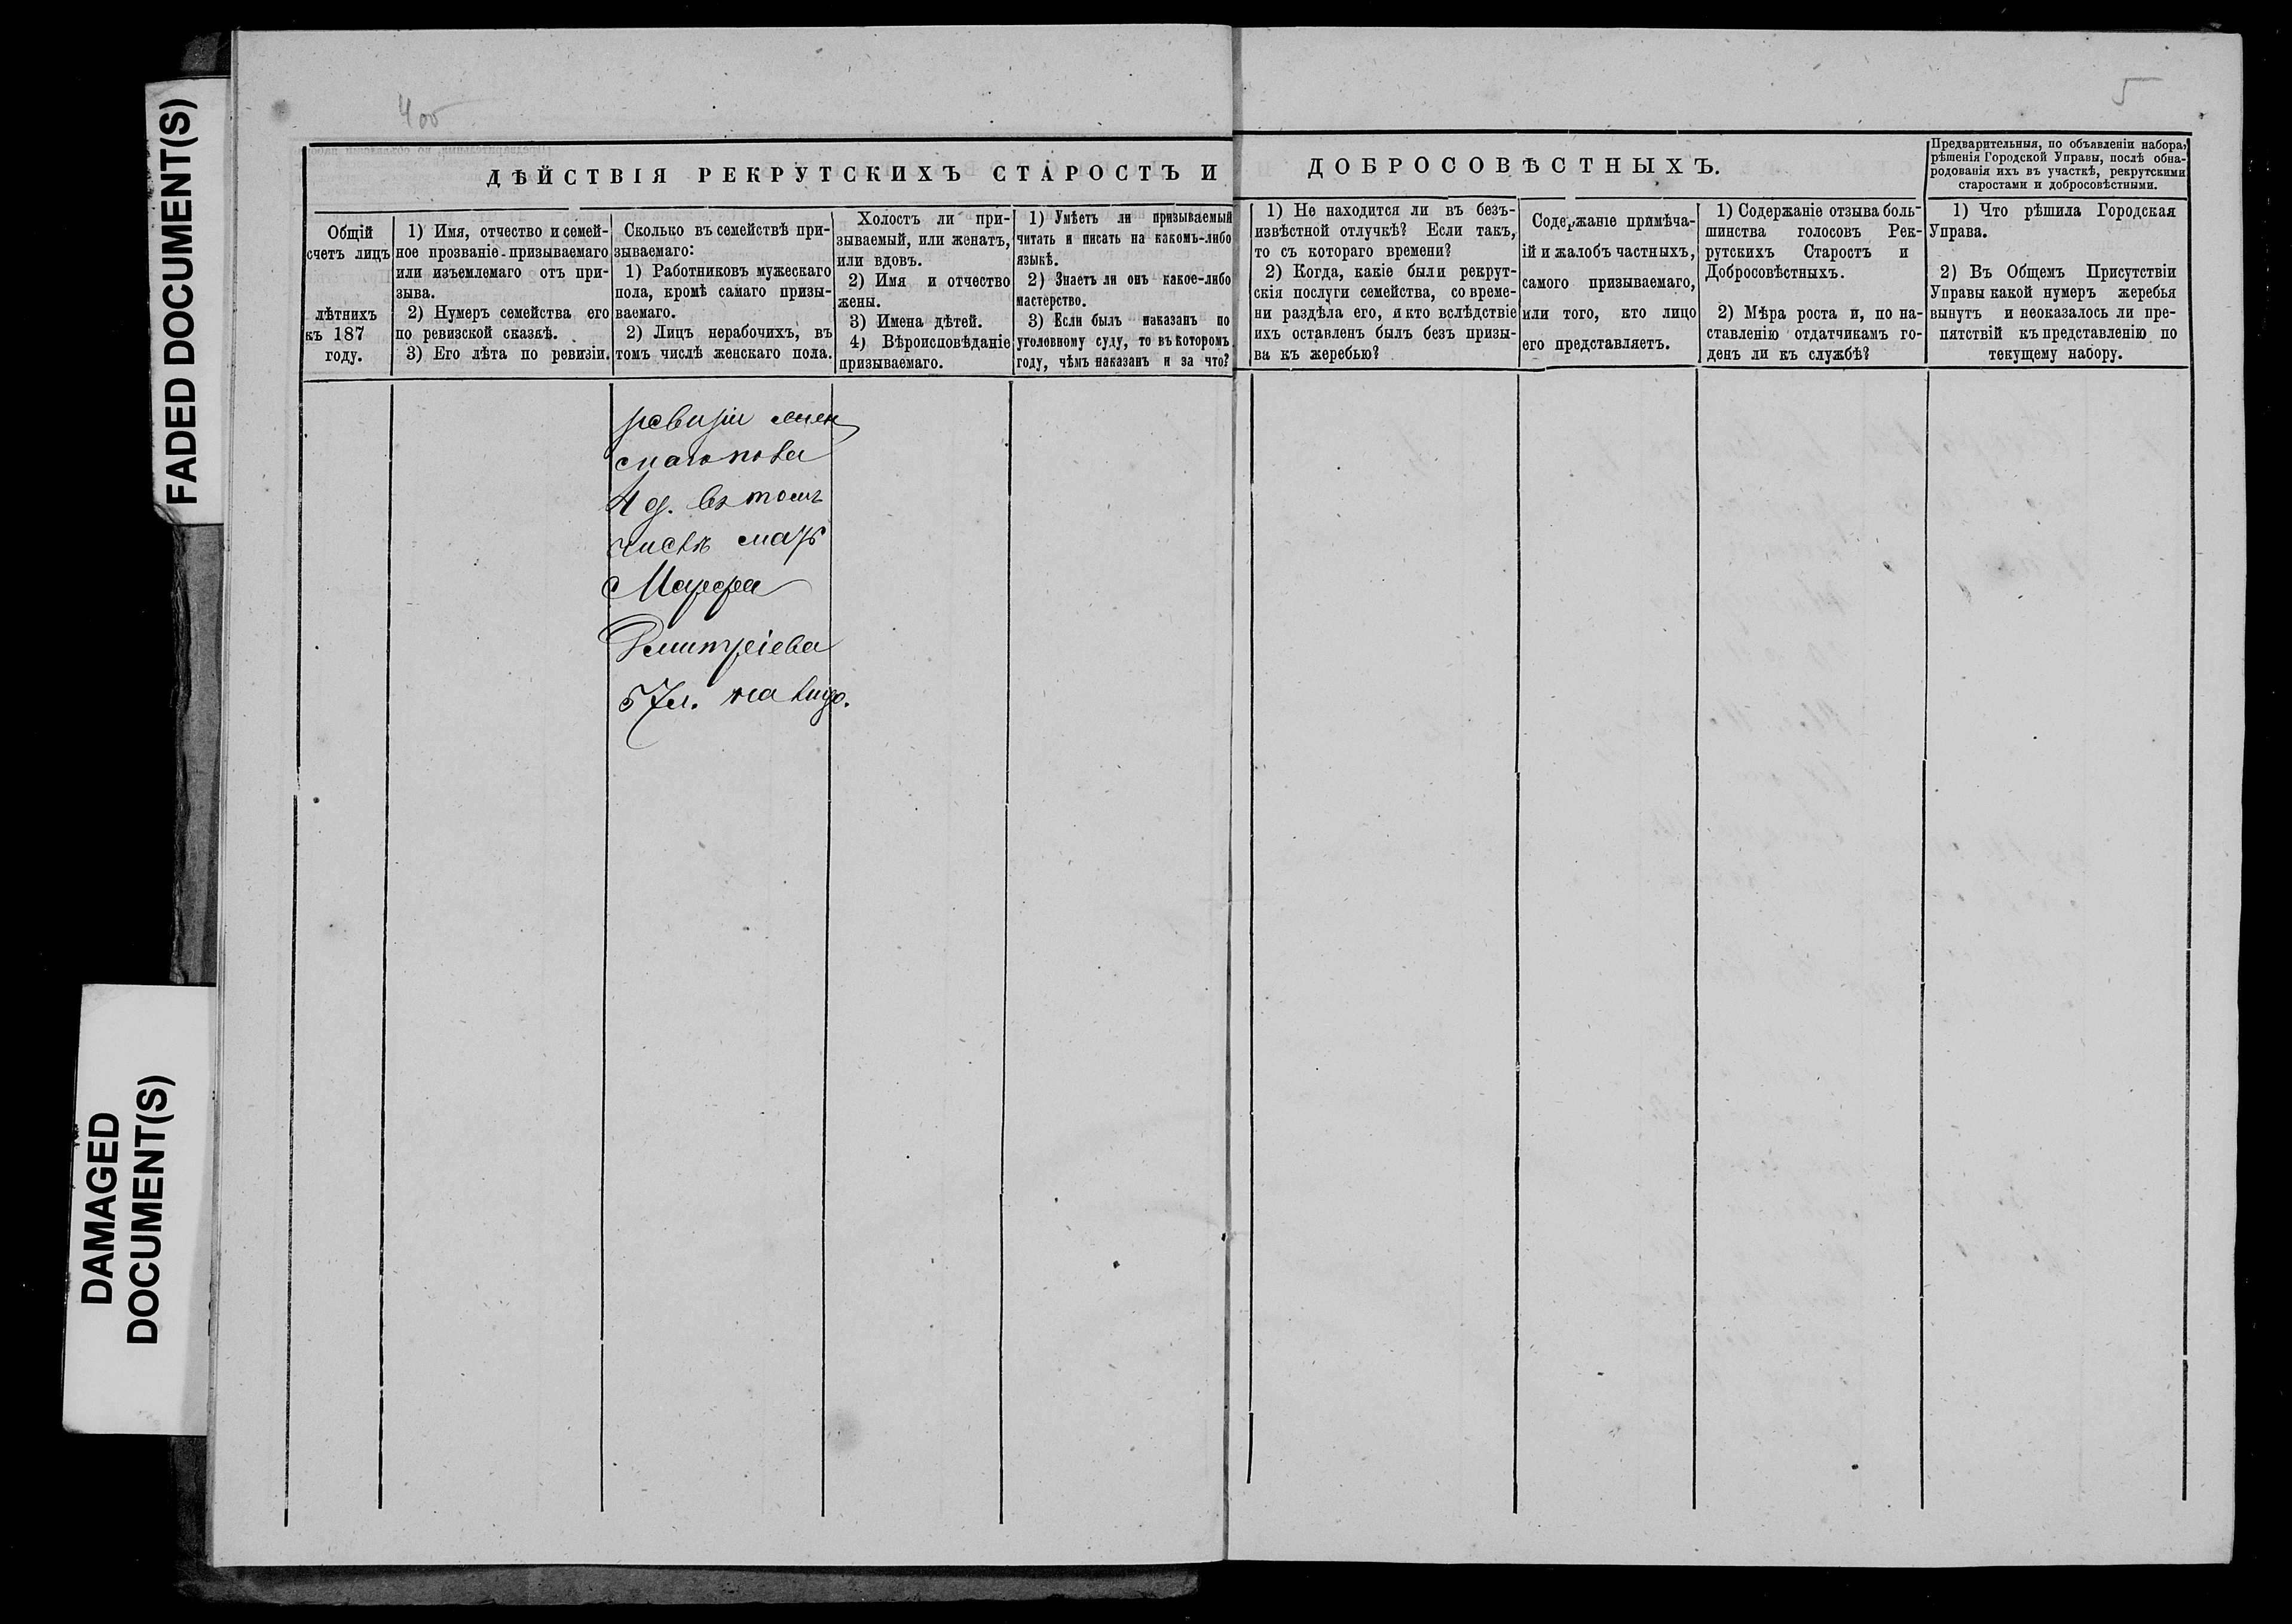 FADED DOCUMENT(S)
DAMAGED
DOCUMENT(S)
400
5
ДѢЙСТВІЯ РЕКРУТСКИХЪ СТАРОСТЪ И ДОБРОСОВѢСТНЫХЪ.
Предварительныя, по объявленіи набора,
рѣшенія Городской Управы, послѣ обна-
родованія ихъ въ участкѣ, рекрутскими
старостами и добросовѣстными.
Общій
счетъ лицъ
лѣтнихъ
къ 187
году.
1) Имя, отчество и семей-
ное прозваніе призываемаго
или изъемлемаго отъ при-
зыва.
2) Нумеръ семейства его
по ревизской сказкѣ.
3) Его лѣта по ревизіи.
Сколько въ семействѣ при-
зываемаго:
1) Работниковъ мужескаго
пола, кромѣ самаго призы-
ваемаго.
2) Лицъ нерабочихъ, въ
томъ числѣ женскаго пола.
Холостъ ли при-
зываемый, или женатъ,
или вдовъ.
2) Имя и отчество
жены.
3) Имена дѣтей.
4) Вѣроисповѣданіе
призываемаго.
1) Умѣетъ ли призываемый
читать и писать на какомъ-либо
языкѣ.
2) Знаетъ ли онъ какое-либо
мастерство.
3) Если былъ наказанъ по
уголовному суду, то въ которомъ
году, чѣмъ наказанъ и за что?
1) Не находится ли въ безъ-
извѣстной отлучкѣ? Если такъ,
то съ котораго времени?
2) Когда, какіе были рекрут-
скія послуги семейства, со време-
ни раздѣла его, и кто вслѣдствіе
ихъ оставленъ былъ безъ призы-
ва къ жеребью?
Содержаніе примѣча-
ій и жалобъ частныхъ,
самого призываемаго,
или того, кто лицо
его представляетъ.
1) Содержаніе отзыва боль-
шинства голосовъ Рек-
рутскихъ Старостъ и
Добросовѣстныхъ.
2) Мѣра роста и, по на-
ставленію отдатчикамъ го-
денъ ли къ службѣ?
1) Что рѣшила Городская
Управа.
2) Въ Общемъ Присутствіи
Управы какой нумеръ жеребья
вынутъ и неоказалось ли пре-
пятствій къ представленію по
текущему набору.
ревизіи
4 д. въ томъ
числѣ мать
Марфа
Дмитріева
57 л. на лицо.